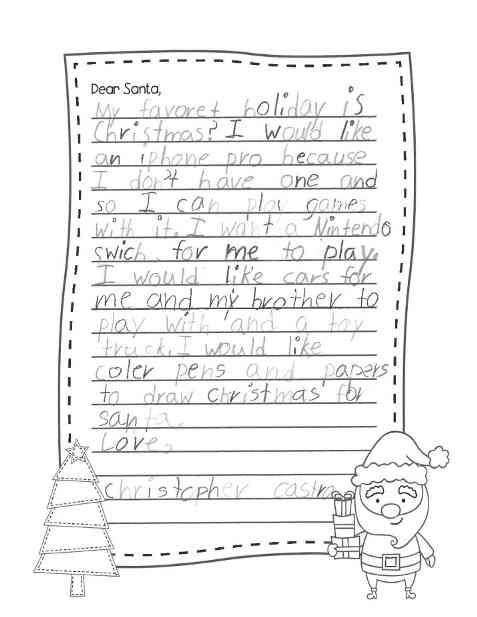 Dear Santa,
My favoret holiday is
Christmas? I would like
an iphone pro because
I don't have one and
so I can play games
with it. I want a Nintendo
swich. for me to play.
I would like cars for
me and my brother to
play with and a toy
truck. I would like
coler pens and papers
to draw christmas for
santa.
Love,
christopher castro